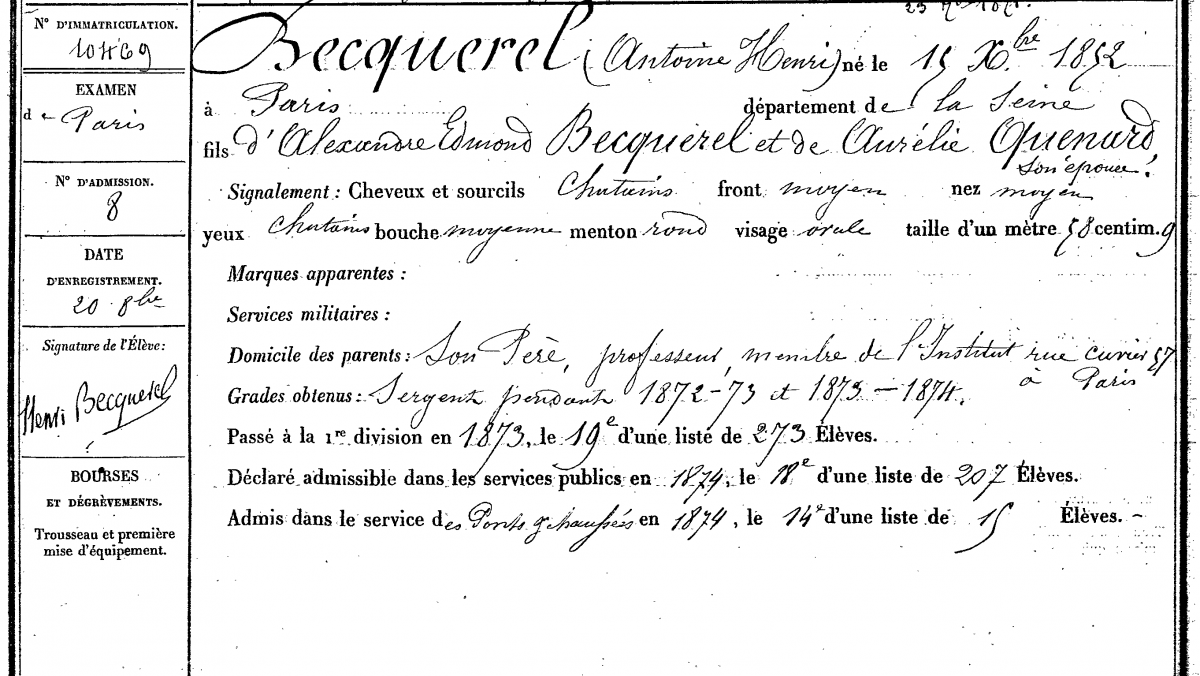 N° D'IMMATRICULATION.
10469
EXAMEN
de Paris
N° D'ADMISSION.
8
DATE
D'ENREGISTREMENT.
20 8bre
Signature de l'Élève:
Henri Becquerel
BOURSES
ET DÉGRÈVEMENTS.
Trousseau et première
mise d'équipement.
Becquerel (Antoine Henri) né le 15 Xbre 1852
à Paris département de la Seine
fils d'Alexandre Edmond Becquerel et de Aurélie Quenard
son épouse.
Signalement : Cheveux et sourcils Chatains front moyen nez moyen
yeux chatains bouche moyenne menton rond visage ovale taille d'un mètre 58 centim. 9
Marques apparentes :
Services militaires :
Domicile des parents : Son Père, professeur, membre de l'Institut rue cuvier 57
à Paris
Grades obtenus : Sergent pendant 1872-73 et 1873-1874.
Passé à la 1re division en 1873, le 19e d'une liste de 273 Élèves.
Déclaré admissible dans les services publics en 1874, le 18e d'une liste de 207 Élèves.
Admis dans le service des Ponts & chaussées en 1874, le 14e d'une liste de 15 Élèves. -